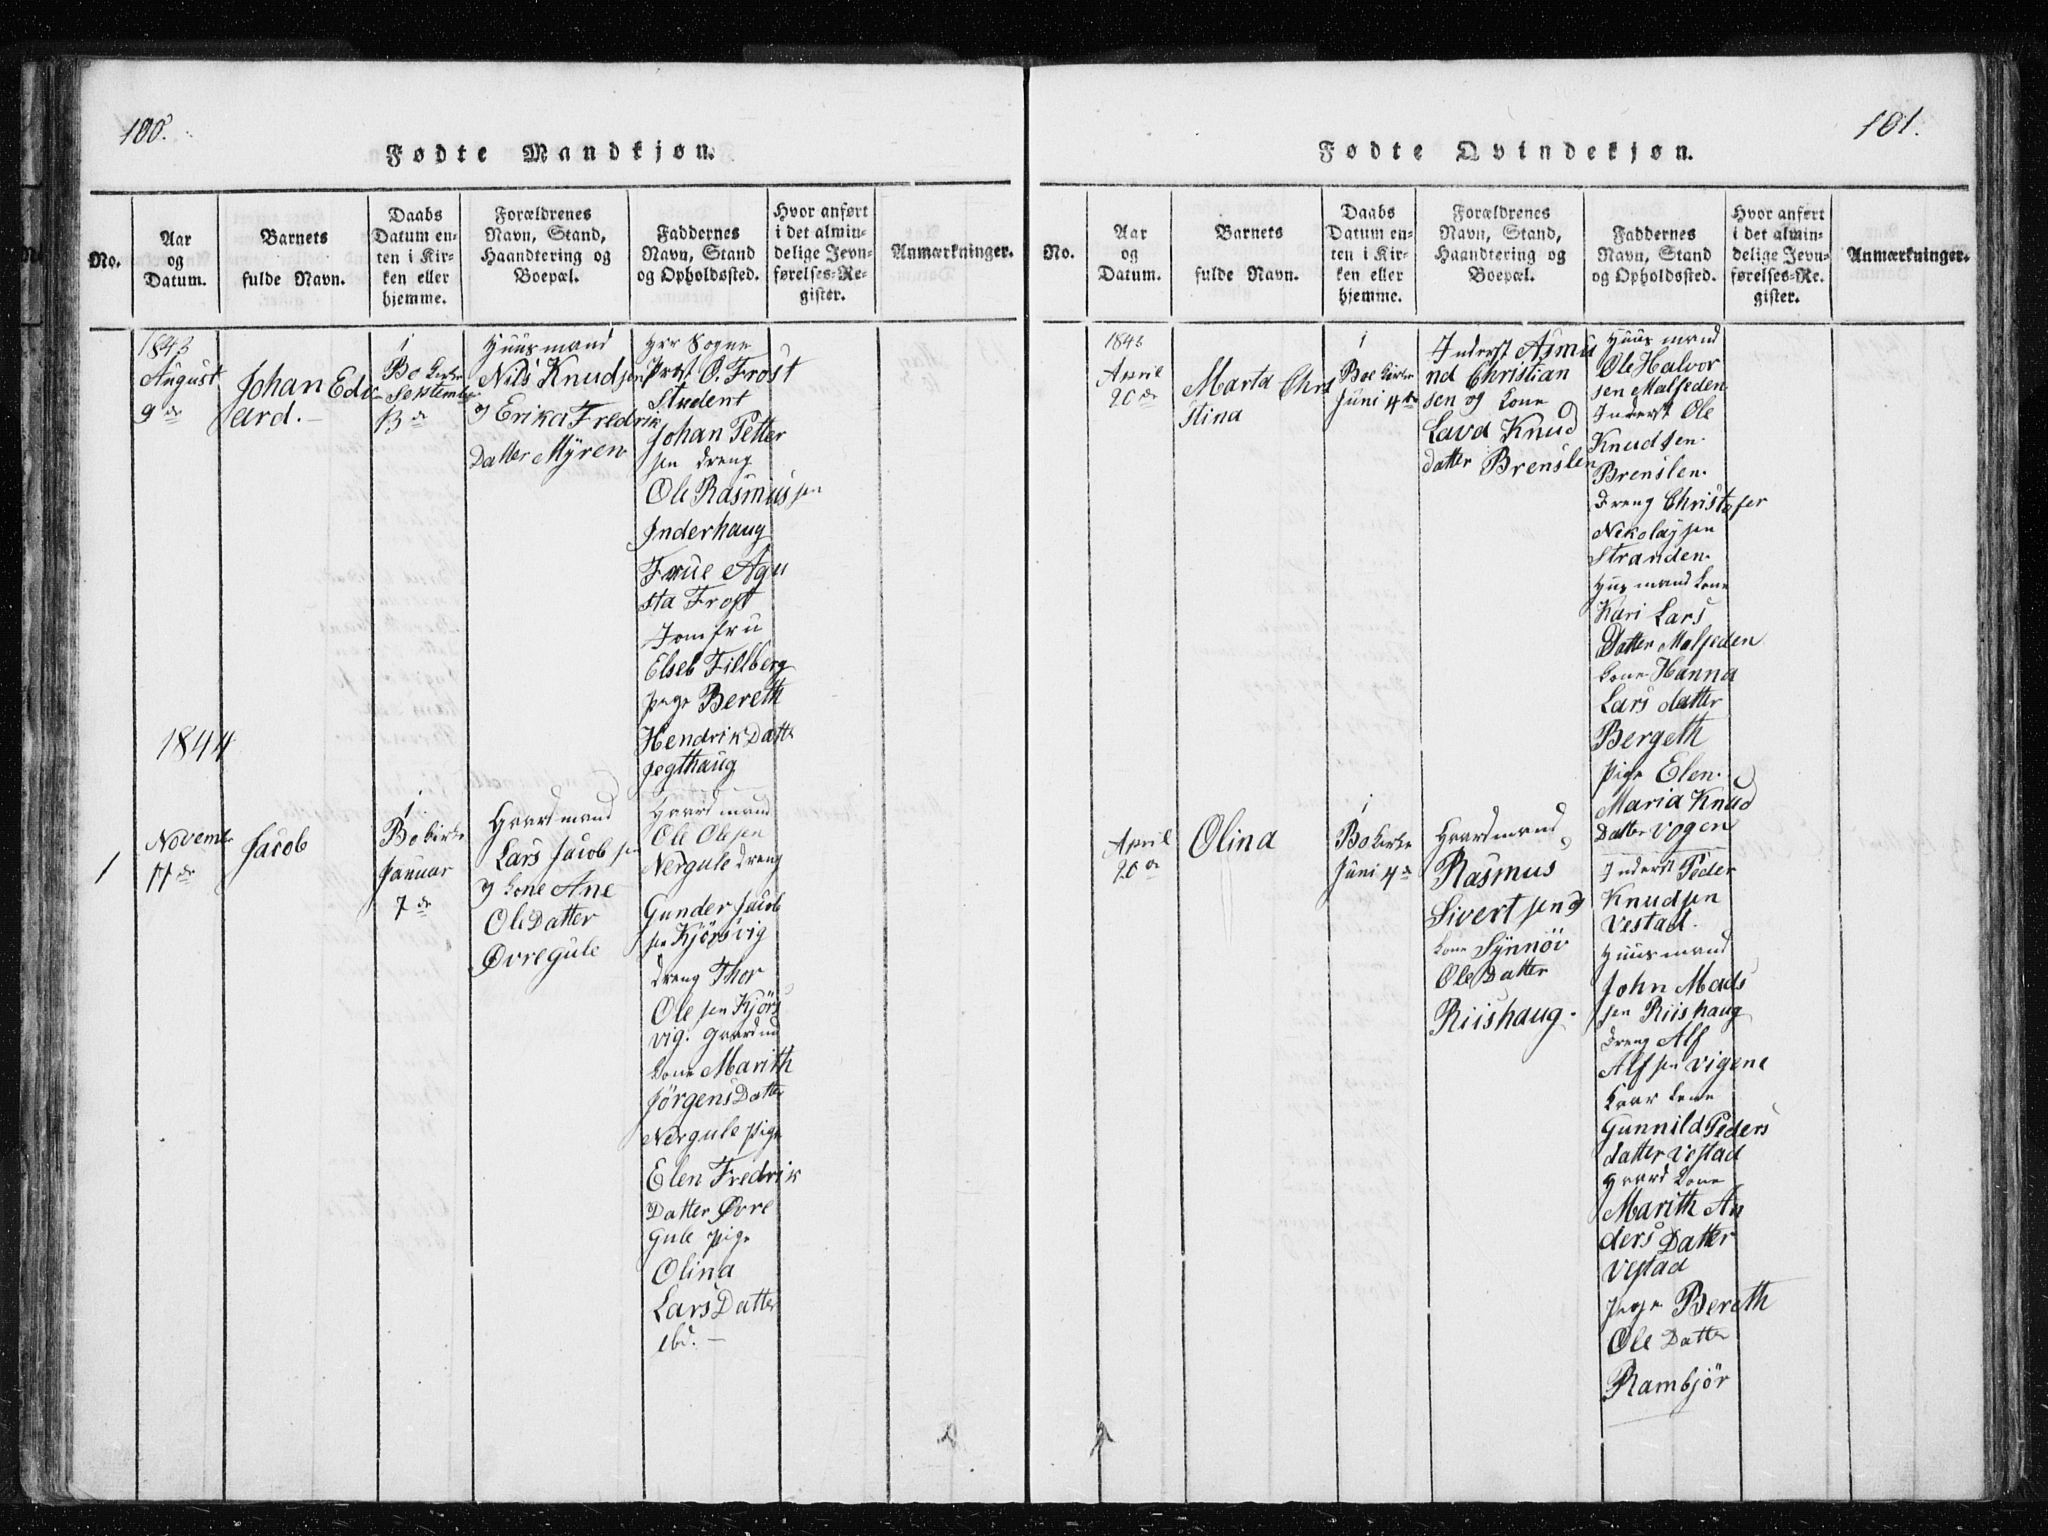 100.
Fødte Mandkjøn.
No.
Aar
og
Datum.
Barnets
fulde Navn.
Daabs
Datum en-
ten i Kir-
ken eller
hjemme.
Forældrenes
Navn, Stand,
Haandtering og
Boepæl.
Faddernes
Navn, Stand
og Opholdssted.
Hvor anført
i det almin-
delige Jevn-
førelses-Re-
gister.
Anmærkninger.
1843
August
9de
Johan Edv-
ard.
i
Bo Kirke
September
13de
Huusmand
Nils Knudsen
og Erika Fredrik
Datter Myren
Hrr Sogne
Prest O. Frost
Student
Johan Petter
sen dreng
Ole Rasmussen
Inderhaug
Frue Agu
sta Frost
Jomfru
Elseb Fillberg
pige Bereth
Hendrik Datter
Jegthaug
1844
1
November
17de
Jacob
i
Bo kirke
Januar
7de
Gaardmand
Lars Jacobsen
og Kone Ane
Ole Datter
Øvregule
Gaardmand
Ole Olesen
Nergule dreng
Gunder Jacob
sen Kjørsvig
dreng Thor
Olesen Kjørs
vig. Gaardmd
Kone Marith
Jørgens Datter
Nergule pige
Elen Fredrik
Datter Øvre
Gule pige
Olina
Lars Datter
ibd. —
101.
Fødte Qvindekjøn.
No.
Aar
og
Datum.
Barnets
fulde Navn.
Daabs
Datum en-
ten i Kir-
ken eller
hjemme.
Forældrenes
Navn, Stand,
Haandtering og
Boepæl.
Faddernes
Navn, Stand
og Opholdssted.
Hvor anført
i det almin-
delige Jevn-
førelses-Re-
gister.
Anmærkninger.
1843
April
20de
Marta Chri
stina
i
Boe Kirke
Juni 4de
Inderst Asmu
nd Christian
sen og Kone
Lava Knud
datter Brenslen
Huusmand
Ole Halvor
sen Malseden
Inderst Ole
Knudsen
Brenslen.
Dreng Christofer
Nikolaysen
Stranden.
Huusmand Kone
Kari Lars
Datter Malseden
Kone Hanna
Lars datter
Bergeth
Pige Elen
Maria Knud
Datter Vogen
April
20de
Olina
i
Bo Kirke
Juni 4de
Gaardmand
Rasmus
Sivertsen og
Kone Synnøv
Ole Datter
Riishaug.
Inderst Peder
Knudsen
Vestad.
Huusmand
John Mads
sen Riishaug
Dreng Alf
Alfsen Vigene
Kaar Kone
Gunnild Peders
datter Vestad
Gaard Kone
Marith An
ders Datter
Vestad
Pige Bereth
Ole Datter
Rambjør